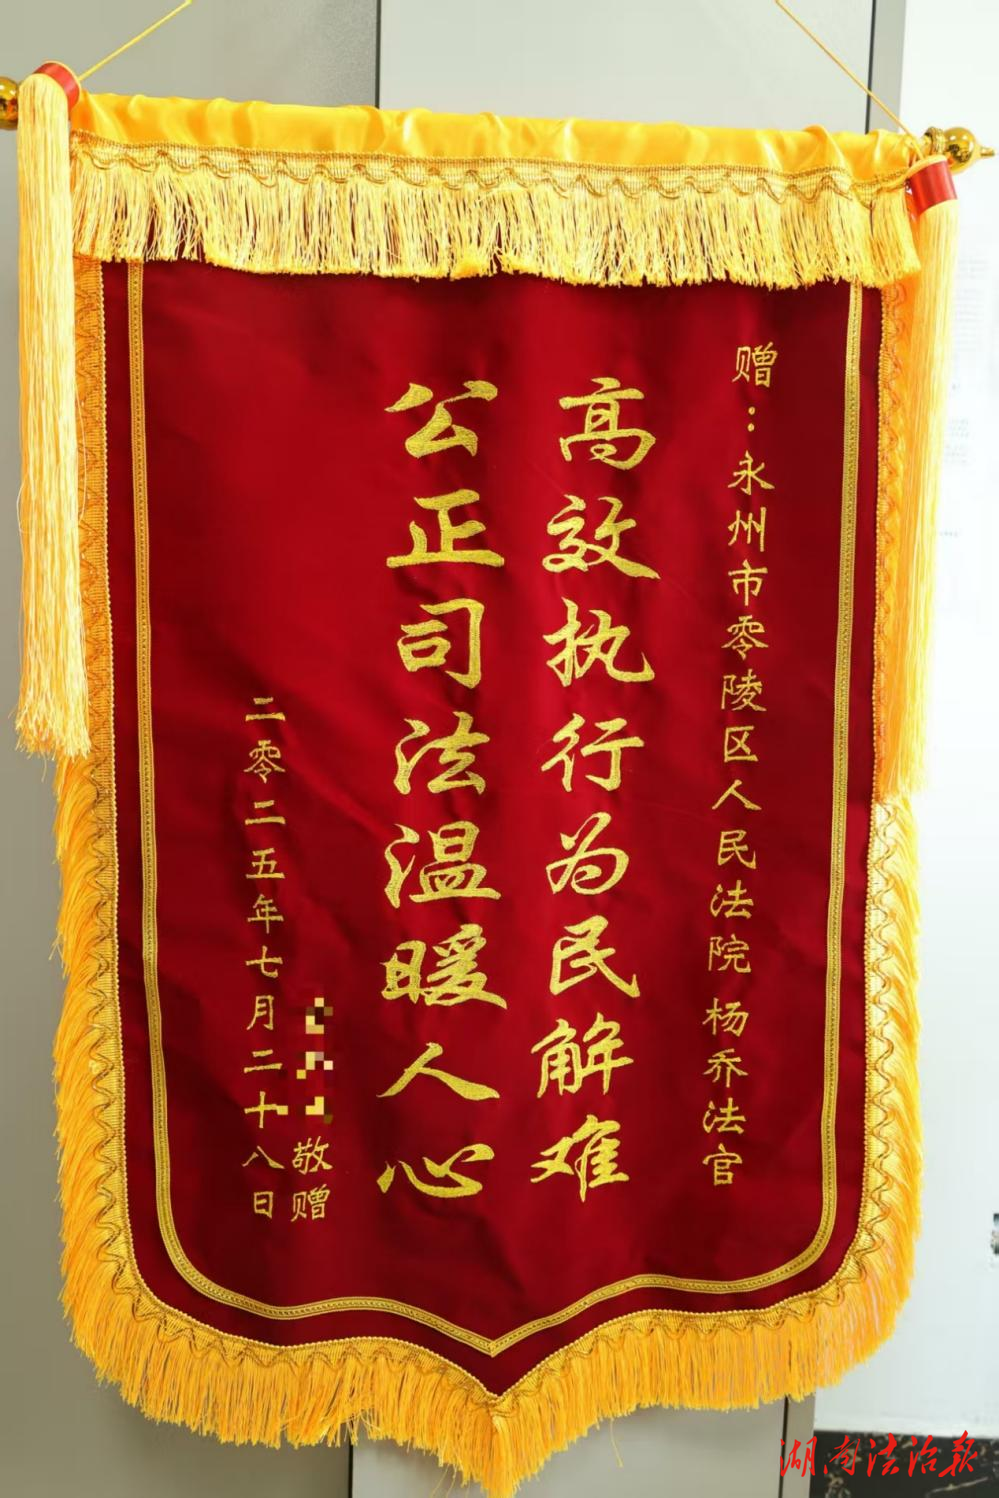 赠：永州市零陵区人民法院杨乔法官
高效执行为民解难
公正司法温暖人心
敬赠
二零二五年七月二十八日
湖南法治报